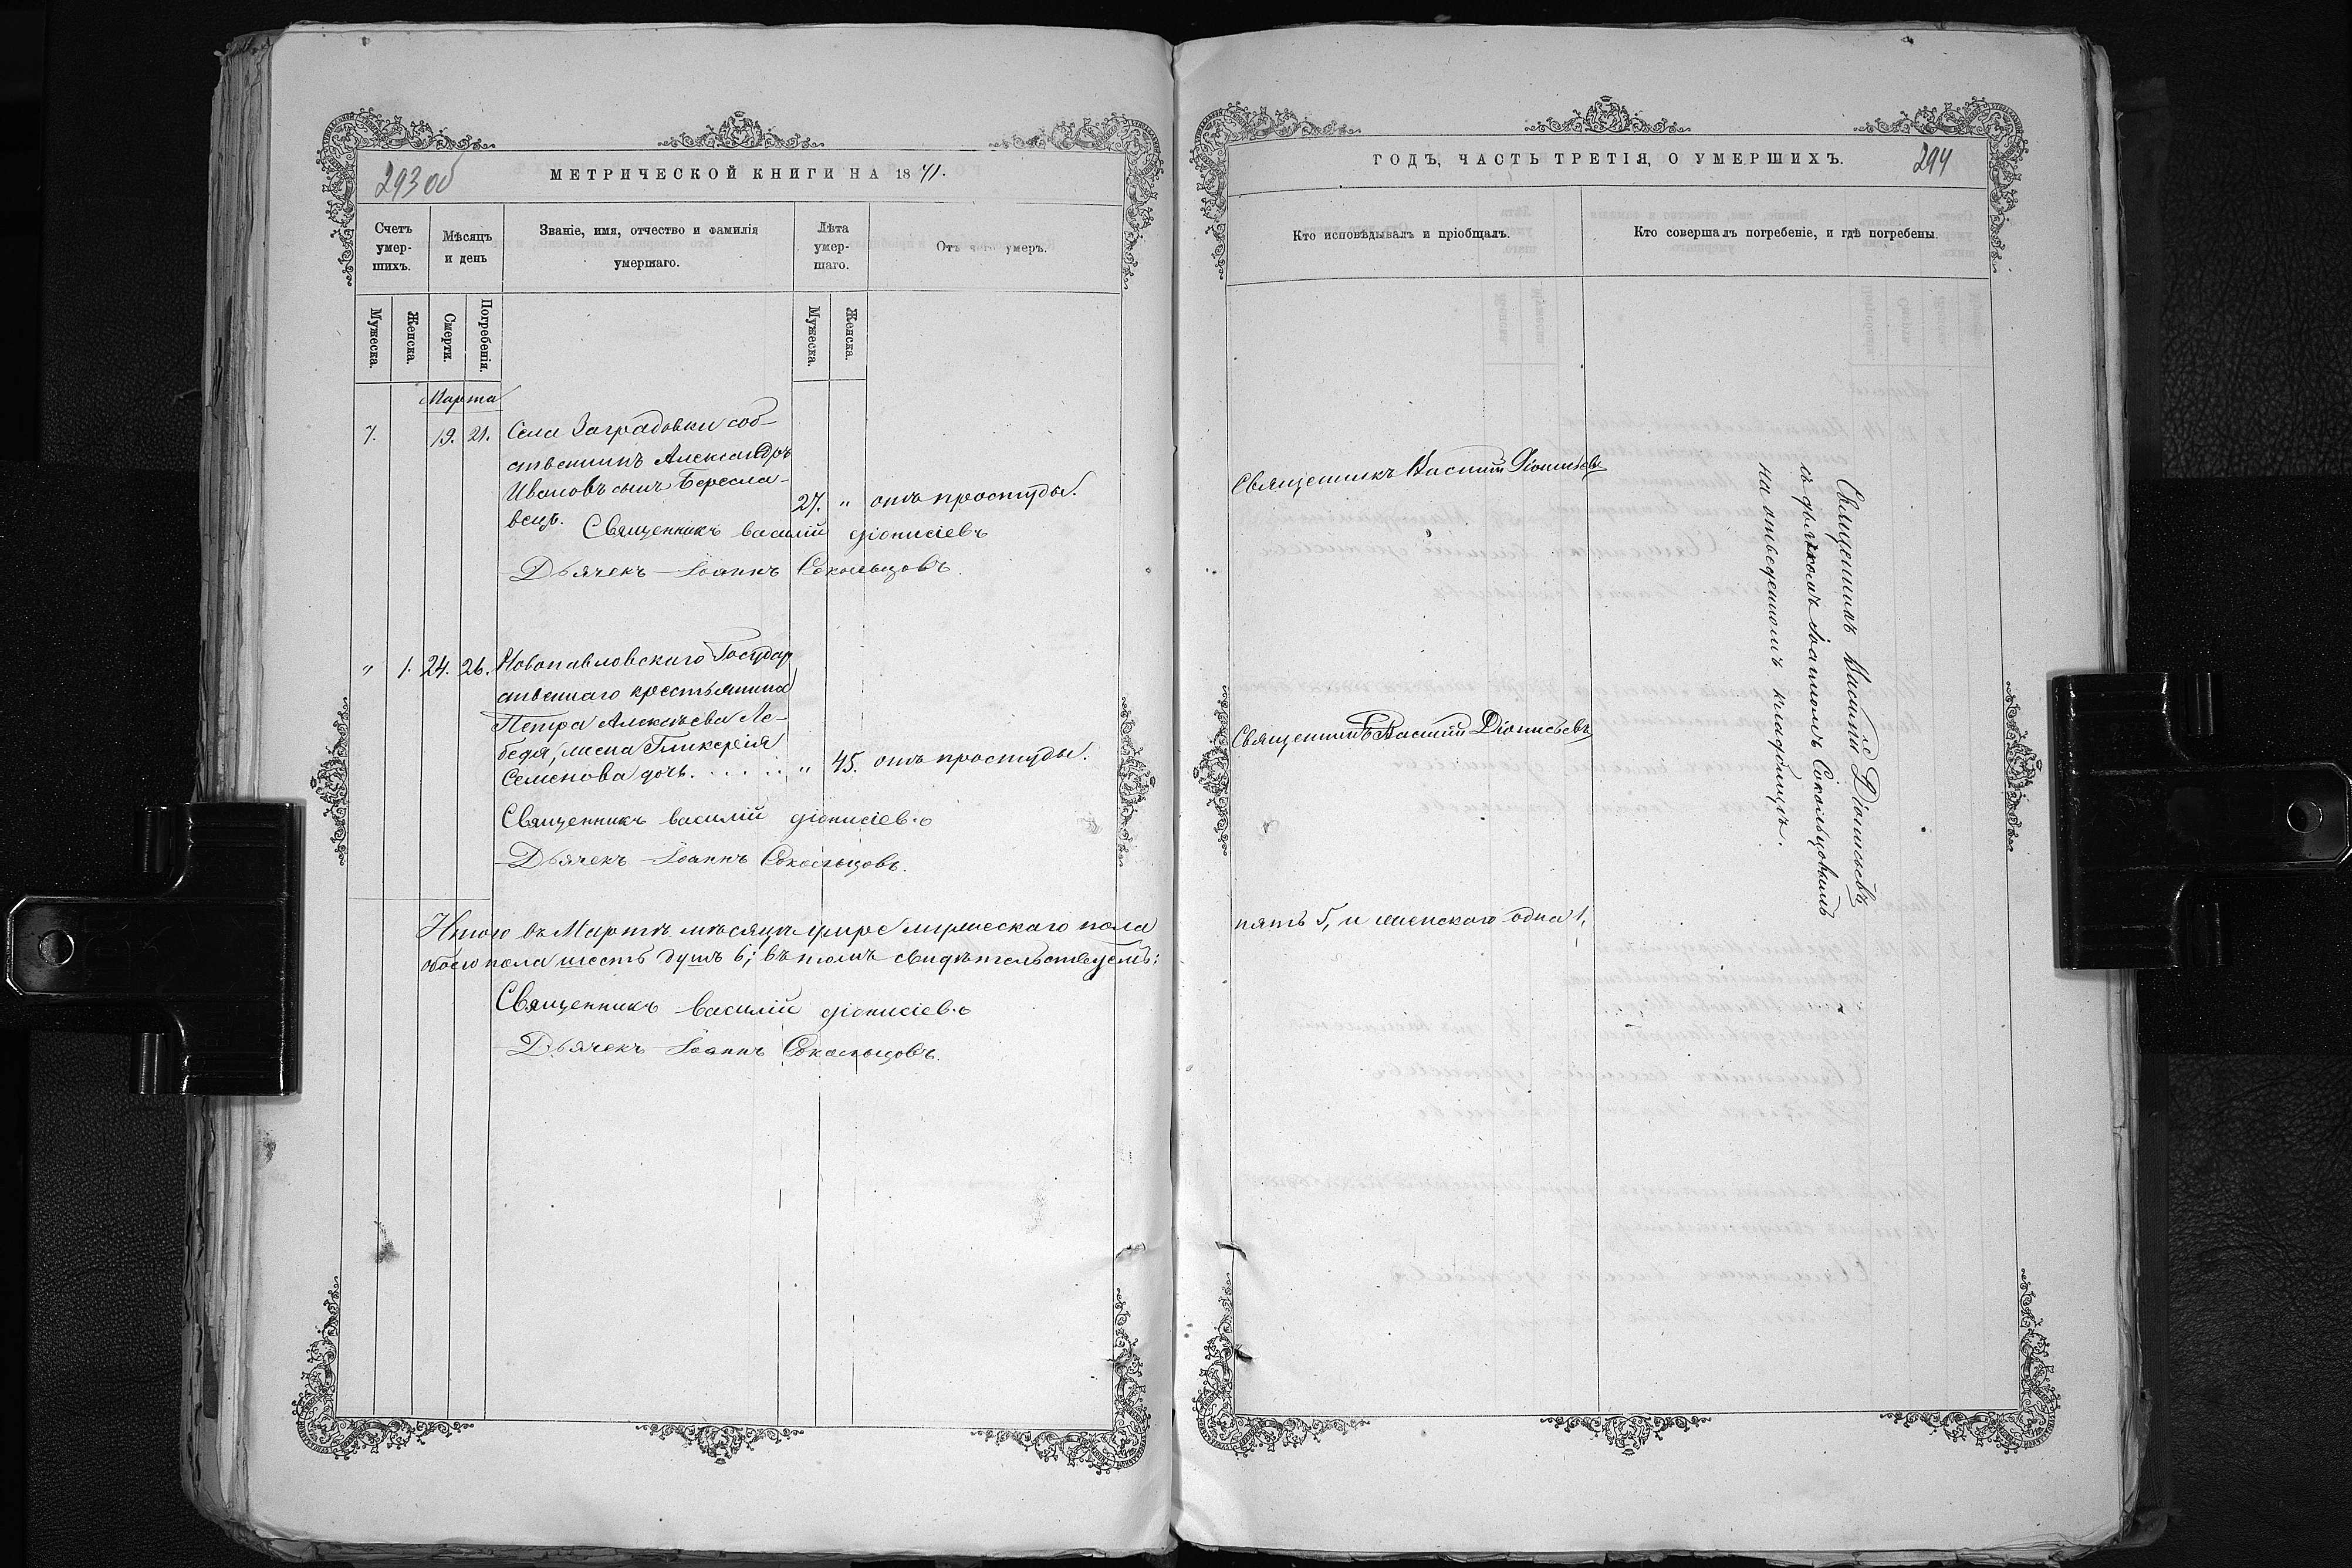 293 об
МЕТРИЧЕСКОЙ КНИГИ НА 1871.
Счетъ умер-шихъ.
Мѣсяцъ и день
Званіе, имя, отчество и фамилія умершаго.
Лѣта умер-шаго.
Отъ чего умеръ.
Мужеска.
Женска.
Смерти.
Погребенія.
Мужеска.
Женска.
Марта
7. 19. 21. Села Заградовки соб-
ственникъ Александръ
Ивановъ сынъ Бересла-
вецъ. 27. " отъ простуды.
Священникъ василій діонисіевъ
Дьячекъ Іоаннъ Сокольцовъ.
" 1. 24. 26. Новопавловскаго Государ
ственнаго крестьянина
Петра Алексѣева Ле-
бедя, жена Гликерія
Семенова дочь. . . . . . " 45. отъ простуды.
Священникъ василій діонисіевъ
Дьячекъ Іоаннъ Сокольцовъ.
Итого въ Мартѣ мѣсяцѣ умре мужескаго пола
обоего пола шесть душъ 6; въ томъ свидѣтельствуемъ:
Священникъ василій діонисіевъ
Дьячекъ Іоаннъ Сокольцовъ.
ГОДЪ, ЧАСТЬ ТРЕТІЯ, О УМЕРШИХЪ.
294
Кто исповѣдывалъ и пріобщалъ.
Кто совершалъ погребеніе, и гдѣ погребены.
Священникъ Василій Діонисьевъ
Священникъ Василій Діонисьевъ
пять 5, и женскаго одна 1,
Священникъ Василій Діонисьевъ
съ дьячкомъ Іоанномъ Сокольцовымъ
на отведенномъ кладбищѣ.